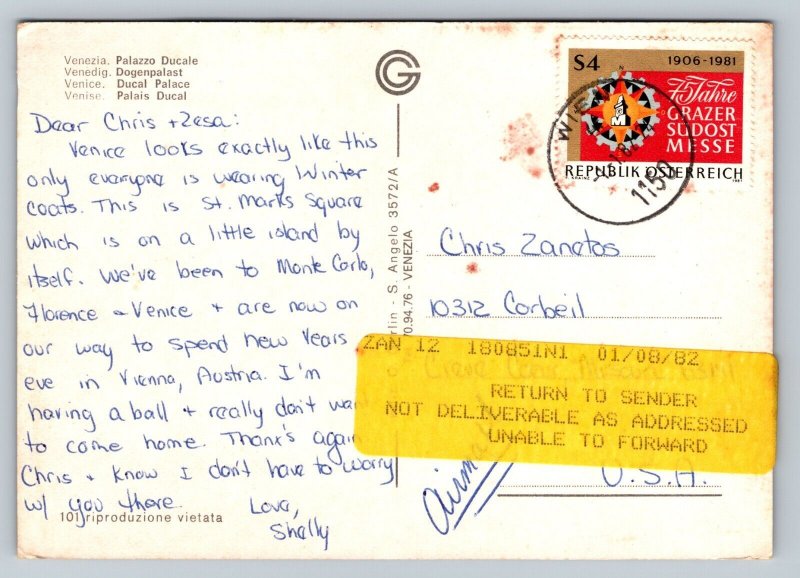 Venezia. Palazzo Ducale
Venedig. Dogenpalast
Venice. Ducal Palace
Venise. Palais Ducal
Dear Chris + Zesa:
Venice looks exactly like this
only everyone is wearing Winter
coats. This is St. Marks Square
which is on a little island by
itself. We've been to Monte Carlo,
Florence & Venice & are now on
our way to spend New Years
eve in Vienna, Austria. I'm
having a ball & really don't want
to come home. Thank's again
Chris & know I don't have to worry
w/ you there.
Love,
Shelly
101 riproduzione vietata
G
rlin - S. Angelo 3572/A
70.94.76 - VENEZIA
S4
1906-1981
75 Jahre
GRAZER
SÜDOST
MESSE
M
REPUBLIK ÖSTERREICH
1981
WIEN
1150
Chris Zanetos
10312 Corbeil
ZAN 12 180851N1 01/08/82
RETURN TO SENDER
NOT DELIVERABLE AS ADDRESSED
UNABLE TO FORWARD
U.S.A.
airmail